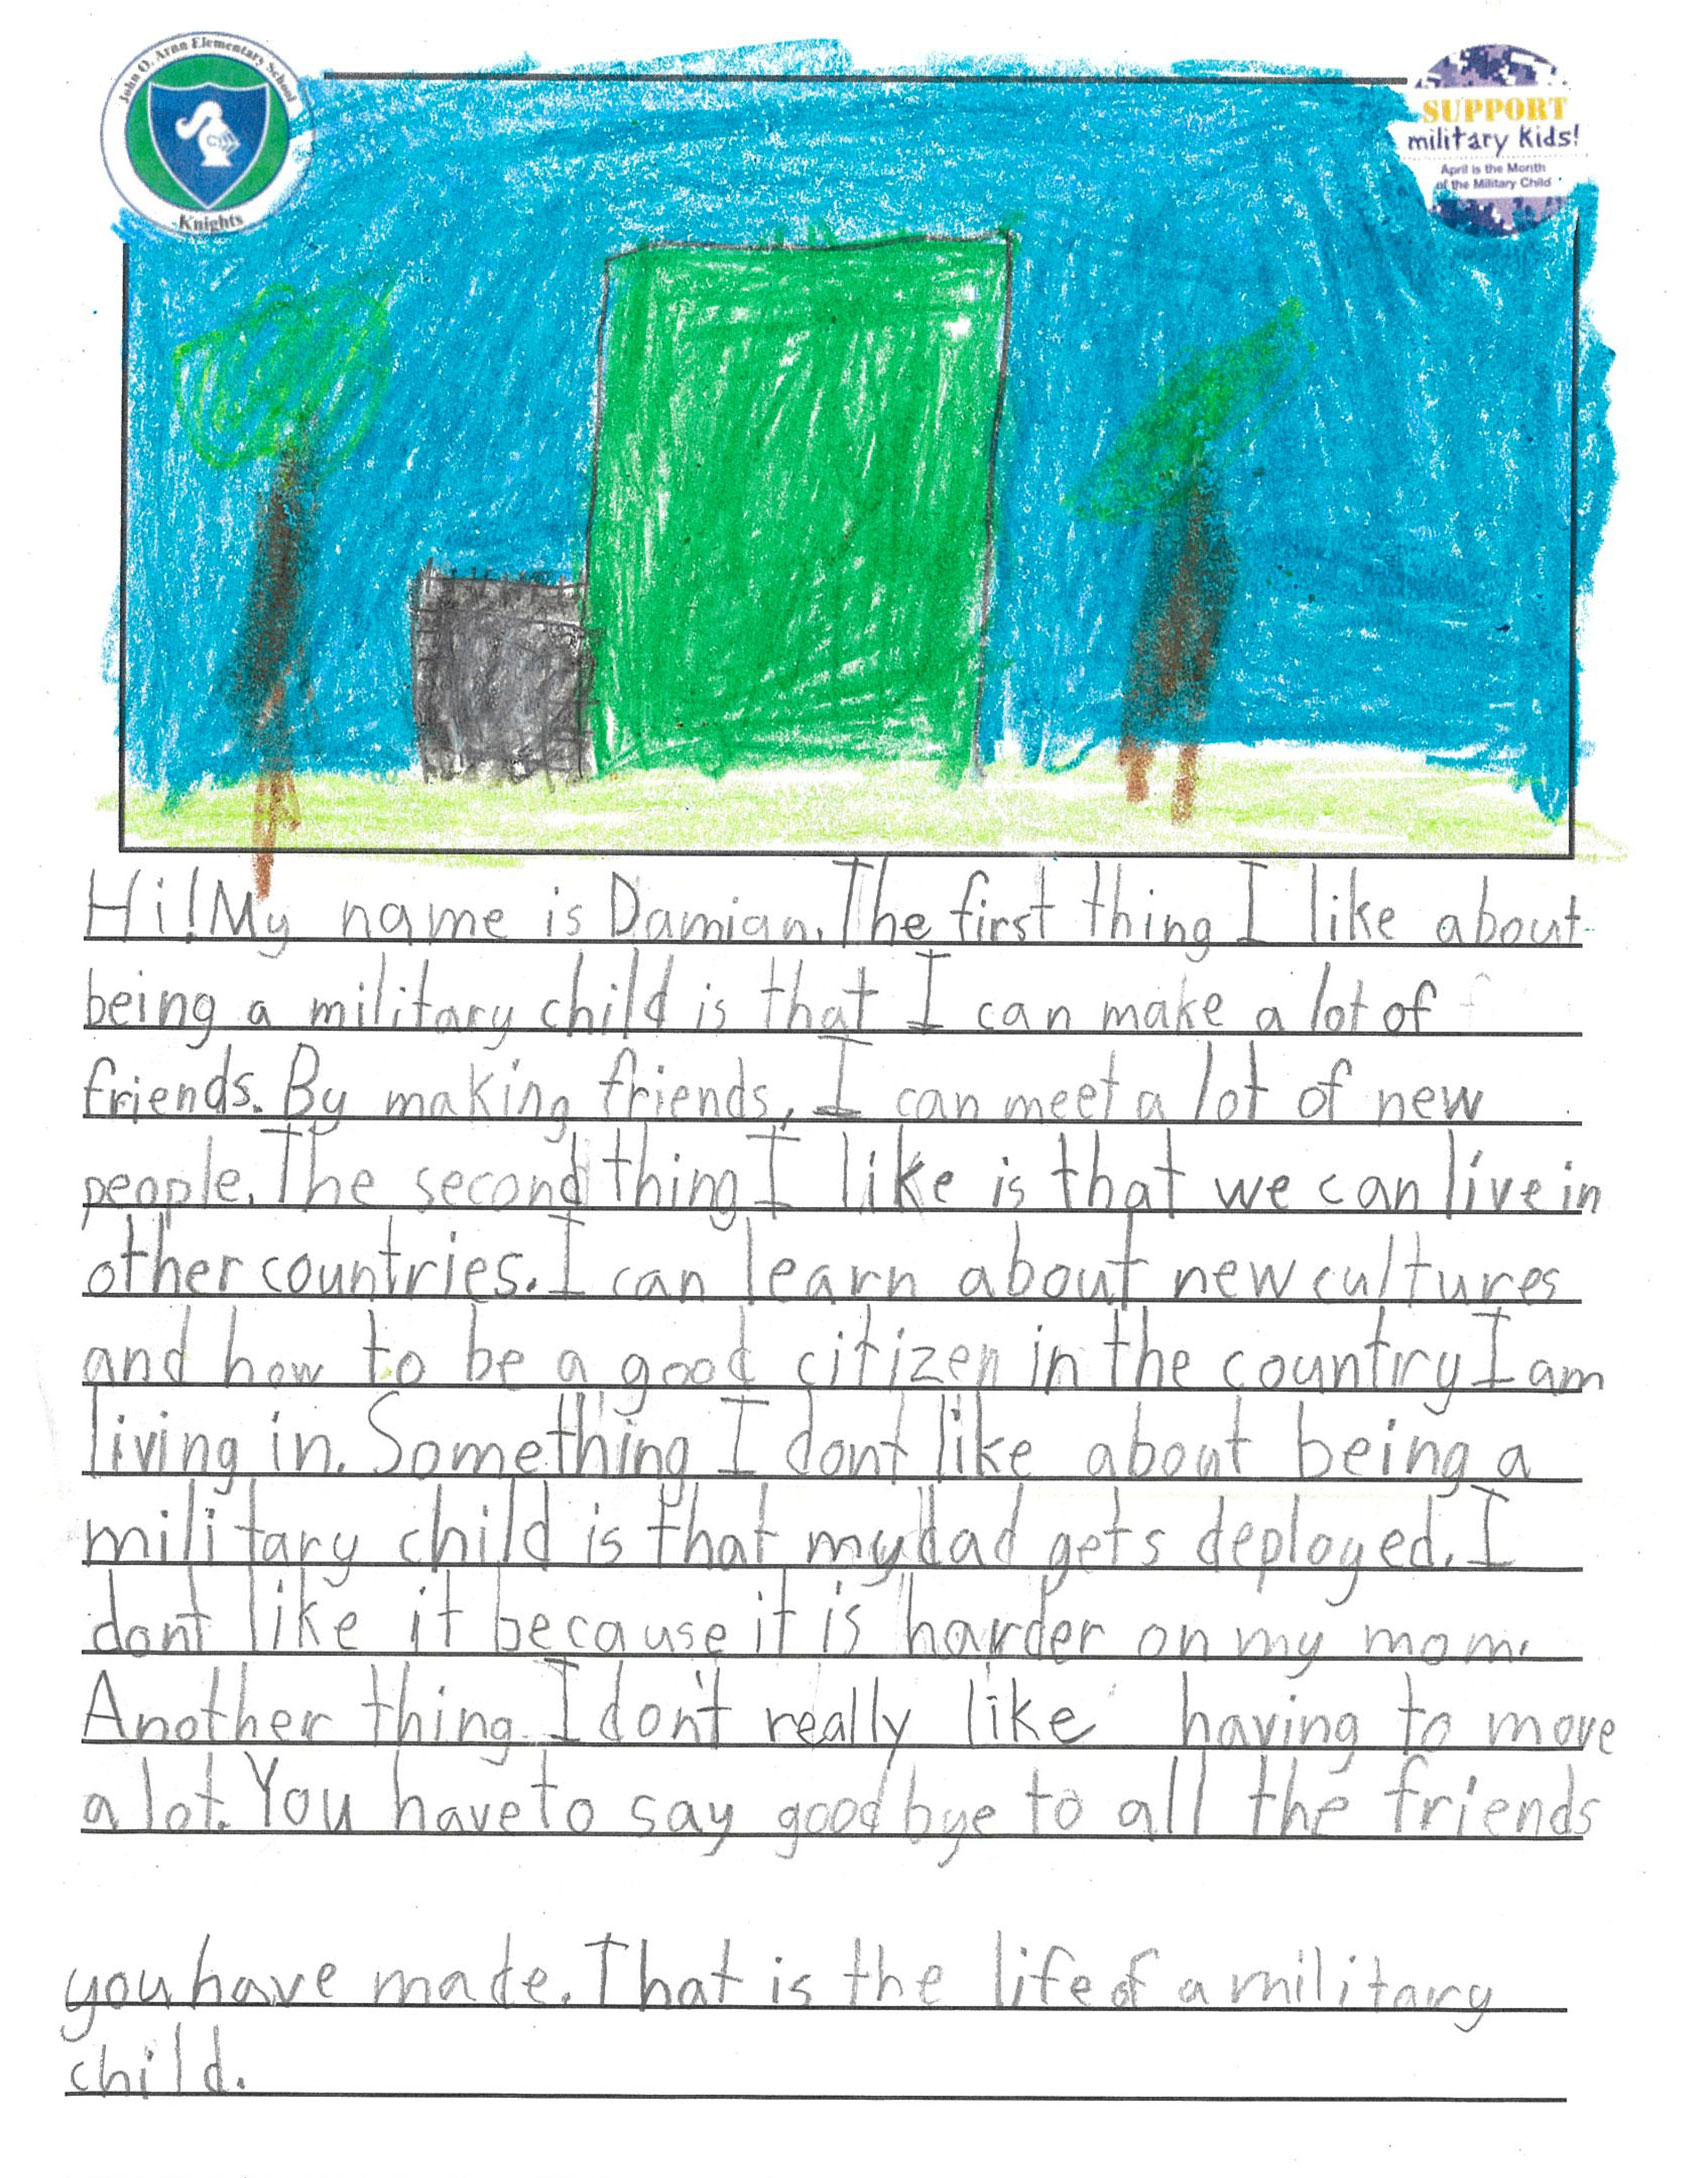 John O. Arnn Elementary School
Knights
SUPPORT
military Kids!
April is the Month
of the Military Child
Hi! My name is Damian. The first thing I like about
being a military child is that I can make a lot of
friends. By making friends, I can meet a lot of new
people. The second thing I like is that we can live in
other countries. I can learn about new cultures
and how to be a good citizen in the country I am
living in. Something I dont like about being a
military child is that my dad gets deployed. I
dont like it because it is harder on my mom.
Another thing I don't really like having to move
a lot. You have to say good bye to all the friends
you have made. That is the life of a military
child.